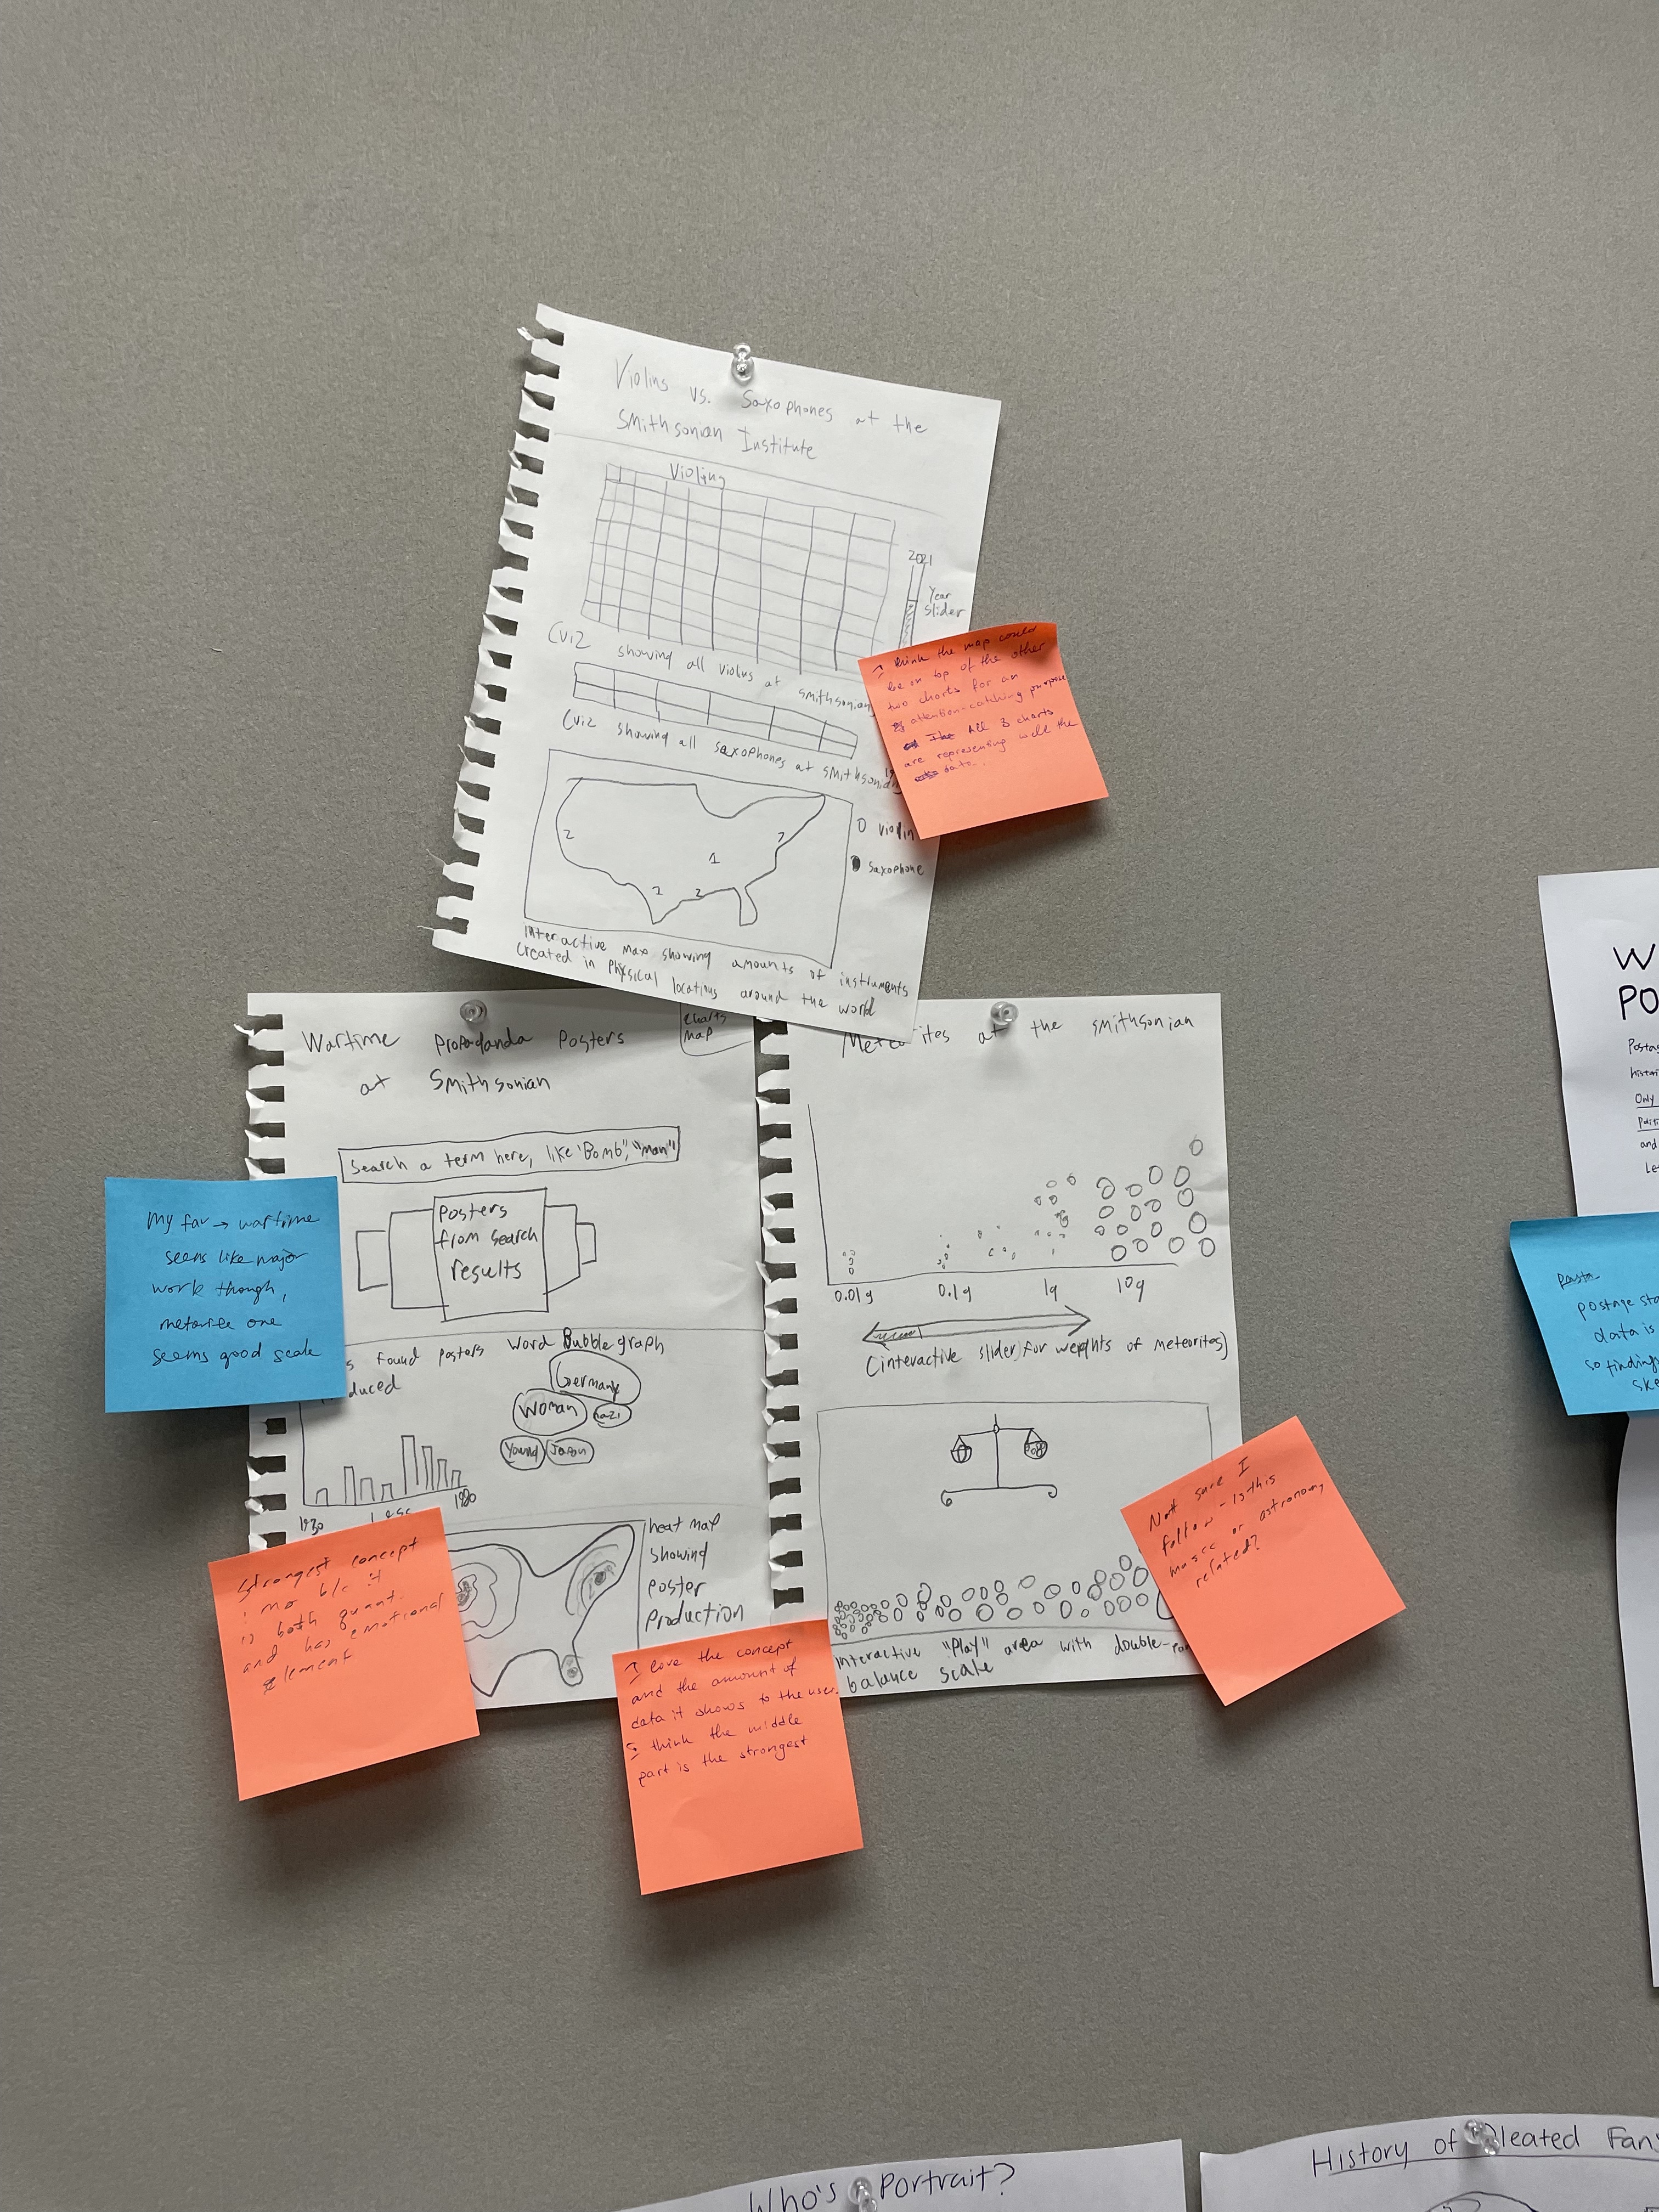 Violins vs. Saxophones at the
Smithsonian Institute
Violins
2021
Year
slider
(viz showing all violins at smithsonian
(viz showing all saxophones at smithsonian)
19
2
1
7
2
2
O violin
saxophone
Interactive map showing amounts of instruments
created in physical locations around the world
I think the map could
be on top of the other
two charts for an
attention-catching purpose
All 3 charts
are representing well the
data.
Wartime Propadanda Posters
at Smithsonian
charts
map
Search a term here, like "Bomb", "man"
Posters
from search
results
s found posters
duced
Word Bubble graph
Germany
Woman
nazi
Young
Japan
1930
1980
heat map
showing
poster
production
My fav → wartime
seems like major
work though,
meteorite one
seems good scale
Strongest concept
imo b/c it
is both quant.
and has emotional
element
I love the concept
and the amount of
data it shows to the user.
I think the middle
part is the strongest
Meteorites at the smithsonian
0.01g
0.1g
1g
10g
(interactive slider for weights of meteorites)
Interactive "Play" area with double-pan
balance scale
Not sure I
follow - is this
music or astronomy
related?
W
PO
Postag
histori
Only
Politi
and
Le
postage sta
data is
so finding
ske
Who's Portrait?
History of Pleated Fans